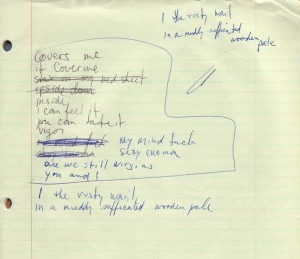 I the rusty nail
in a muddy sufficated
wooden pale
Covers me
it Cover me
inside,
I can feel it
you can taste it
vigor
my mind fuck
stay enema
are we still virgins
you and I
I the rusty nail
in a muddy sufficated wooden pale